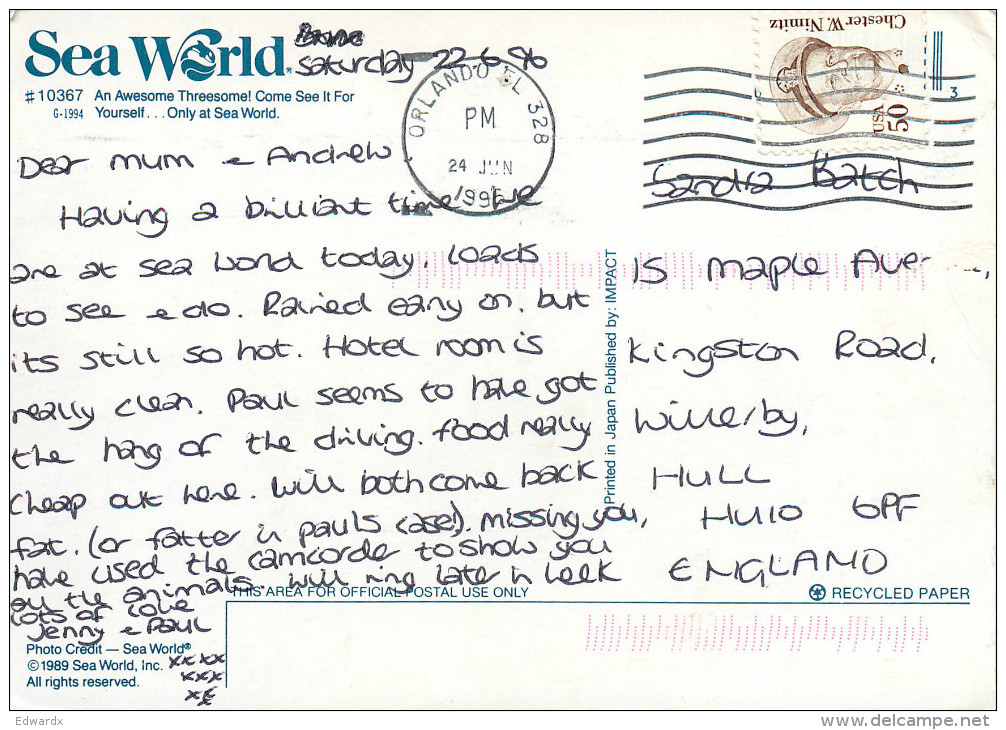 Sea World®
Saturday 22-6-96
#10367 An Awesome Threesome! Come See It For
G-1994 Yourself...Only at Sea World.
ORLANDO FL 328
PM
24 JUN
1996
Chester W. Nimitz
USA 50
3
Dear Mum & Andrew,
Having a brilliant time. We
are at sea world today. loads
to see & do. Rained early on, but
its still so hot. Hotel room is
really clean. Paul seems to have got
the hang of the driving. food really
cheap out here. Will both come back
fat. (or fatter in pauls case!). missing you,
have used the camcorder to show you
all the animals. Will ring later in week
lots of love
Jenny & Paul
xxxx
xxx
xx
Sandra Batch
15 Maple Ave
Kingston Road,
Willerby,
HULL
HU10 6PF
ENGLAND
Printed in Japan Published by: IMPACT
THIS AREA FOR OFFICIAL POSTAL USE ONLY
RECYCLED PAPER
Photo Credit — Sea World®
©1989 Sea World, Inc.
All rights reserved.
Edwardx
delcampe.net